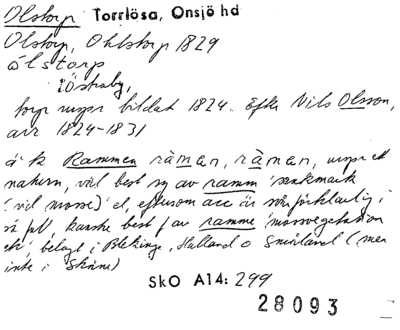 Olstorp Torrlösa, Onsjö hd
Olstorp, Ohlstorp 1829
ólstorp
i Östraby,
torp uppr bildat 1824. Efter Nils Olsson,
arr 1824-1831
ä k Rammen ràman, ràman, uppr ett
naturn, väl best sg av ramm 'sankmark
(vid mosse)' el, eftersom acc är oförklarlig i
så fall, kanske best f av ramme 'mossvegetation
etc', belagt i Blekinge, Halland o Småland (men
inte i Skåne)
SkO A14: 299
28093